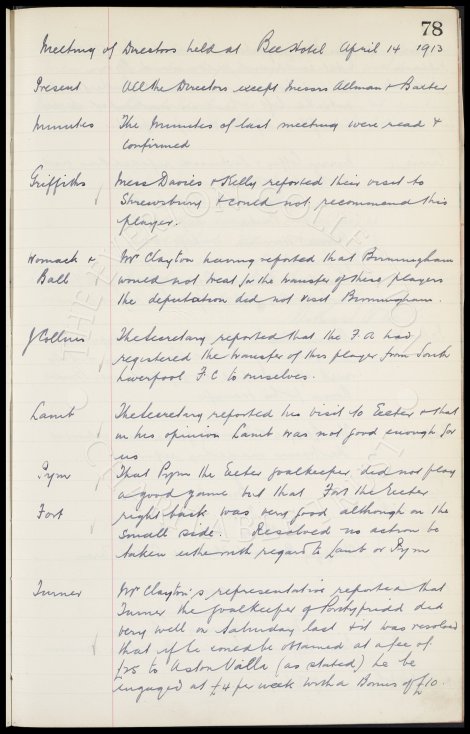 78
Meeting of Directors held at Bee Hotel April 14 1913
Present All the Directors except Messrs Allman & Baxter
Minutes The Minutes of last meeting were read &
confirmed
Griffiths Mess Davies & Kelly reported their visit to
Shrewsbury & could not recommend this
player.
Womack & Mr Clayton having reported that Birmingham
Ball would not treat for the transfer of these players
the deputation did not visit Birmingham.
J Collins The Secretary reported that the F.A had
registered the transfer of this player from South
Liverpool F.C to ourselves.
Lamb The Secretary reported his visit to Exeter & that
in his opinion Lamb was not good enough for
us
Pym That Pym the Exeter goalkeeper did not play
a good game but that Fort the Exeter
Fort right back was very good although on the
small side. Resolved no action be
taken with regard to Lamb or Pym
Turner Mr Clayton's representative reported that
Turner the goalkeeper of Pontypridd did
very well on Saturday last & it was resolved
that if he could be obtained at a fee of
£25 to Aston Villa (as stated) he be
engaged at £4 per week with a Bonus of £10.